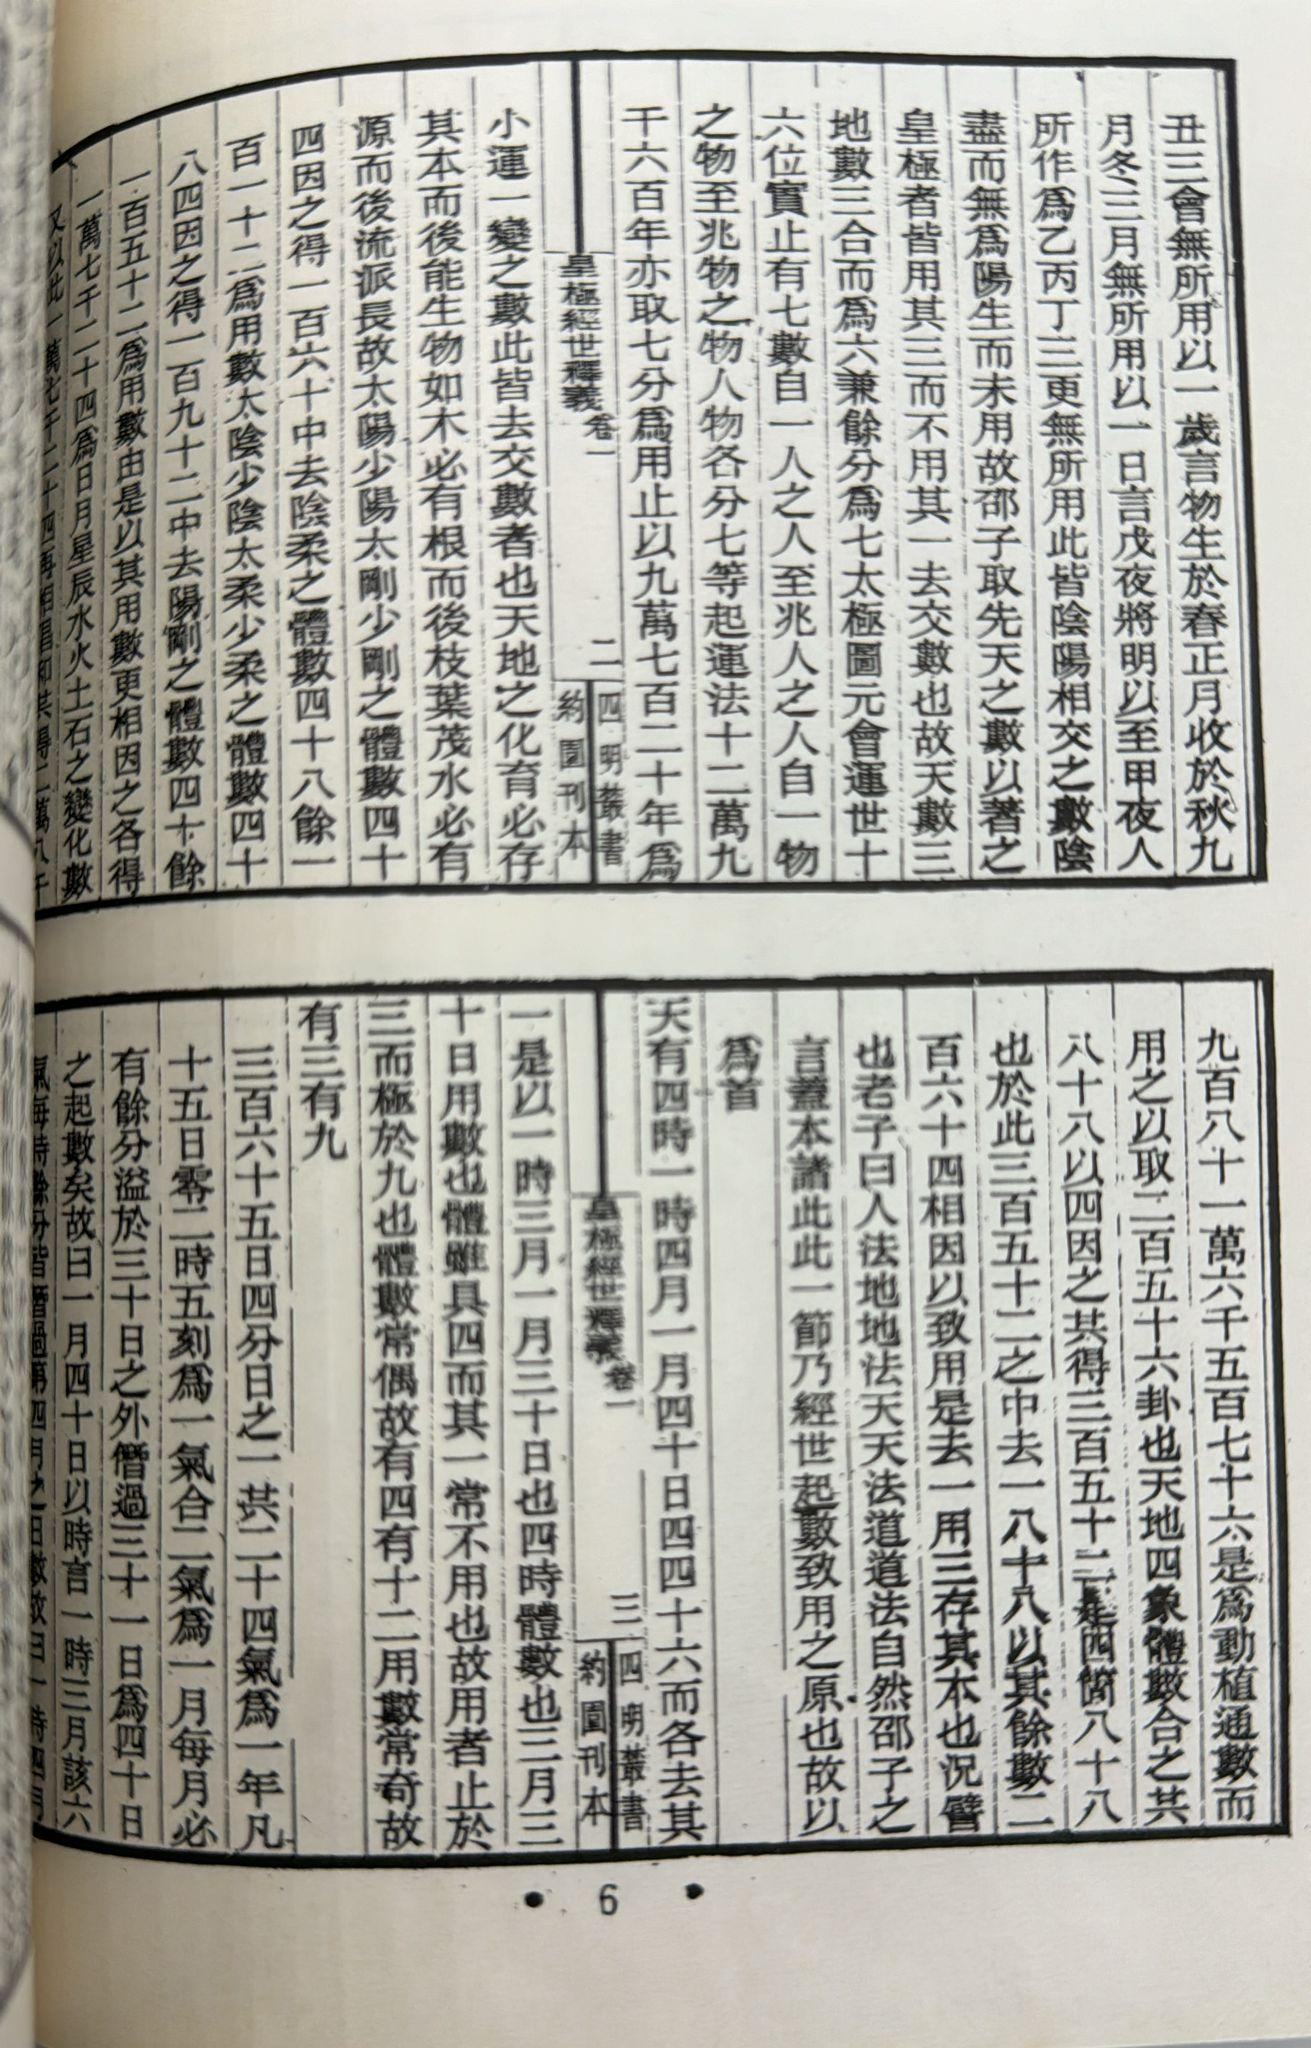 丑三會無所用以一歲言物生於春正月收於秋九
月冬三月無所用以一日言戊夜將明以至甲夜人
所作爲乙丙丁三更無所用此皆陰陽相交之數陰
盡而無爲陽生而未用故邵子取先天之數以著之
皇極者皆用其三而不用其一去交數也故天數三
地數三合而爲六兼餘分爲七太極圖元會運世十
六位實止有七數自一人之人至兆人之人自一物
之物至兆物之物人物各分七等起運法十二萬九
千六百年亦取七分爲用止以九萬七百二十年爲
皇極經世釋義 卷一
二
四明叢書
約園刊本
小運一變之數此皆去交數者也天地之化育必存
其本而後能生物如木必有根而後枝葉茂水必有
源而後流派長故太陽少陽太剛少剛之體數四十
四因之得一百六十中去陰柔之體數四十八餘一
百一十二爲用數太陰少陰太柔少柔之體數四十
八四因之得一百九十二中去陽剛之體數四十餘
一百五十二爲用數由是以其用數更相因之各得
一萬七千二十四爲日月星辰水火土石之變化數
又以此一萬七千二十四再相唱和其得二萬八千
九百八十一萬六千五百七十六是爲動植通數而
用之以取二百五十六卦也天地四象體數合之共
八十八以四因之其得三百五十二是四箇八十八
也於此三百五十二之中去一八十八以其餘數二
百六十四相因以致用是去一用三存其本也況譬
也老子曰人法地地法天天法道道法自然邵子之
言蓋本諸此此一節乃經世起數致用之原也故以
爲首
天有四時一時四月一月四十日四四十六而各去其
皇極經世釋義 卷一
三
四明叢書
約園刊本
一是以一時三月一月三十日也四時體數也三月三
十日用數也體雖具四而其一常不用也故用者止於
三而極於九也體數常偶故有四有十二用數常奇故
有三有九
三百六十五日四分日之一共二十四氣爲一年凡
十五日零二時五刻爲一氣合二氣爲一月每月必
有餘分溢於三十日之外僭過三十一日爲四十日
之起數矣故曰一月四十日以時言一時三月該六
氣每時餘分皆僭過第四月之日數故曰一時四月
• 6 •